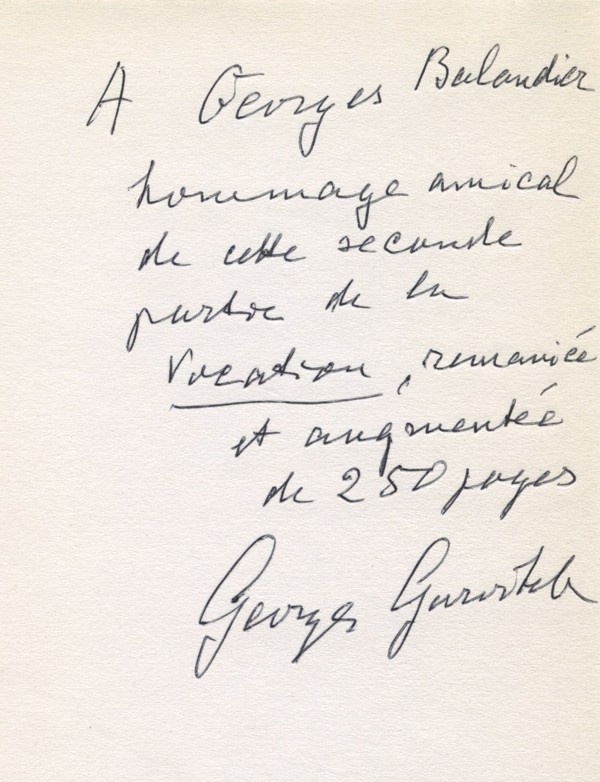 A Georges Balandier
hommage amical
de cette seconde
partie de la
Vocation, remaniée
et augmentée
de 250 pages
Georges Gurvitch